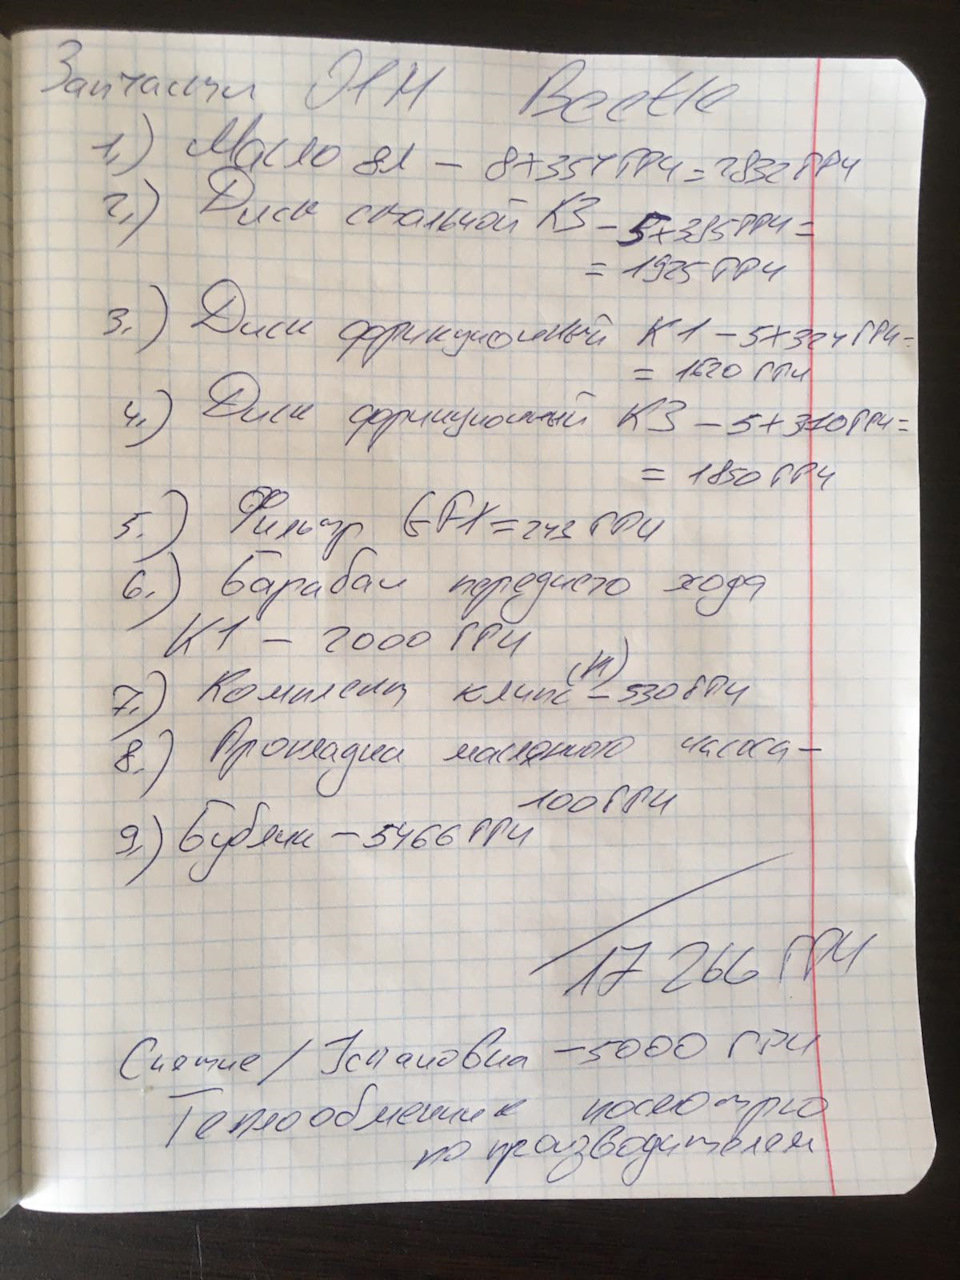 Запчасти 01М Beetle
1.) Масло 8л - 8×354ГРЧ=2832ГРЧ
2.) Диск стальной К3 - 5×385ГРЧ=
= 1925 ГРЧ
3.) Диск фрикционный К1 - 5×324ГРЧ=
= 1620 ГРЧ
4.) Диск фрикционный К3 - 5×370ГРЧ=
= 1850ГРЧ
5.) Фильтр =243ГРЧ
6.) Барабан переднего хода
К1 - 2000 ГРЧ
7.) Комплект клипс - 530ГРЧ
8.) Прокладка масляного насоса -
100ГРЧ
9.) Бублик - 5466ГРЧ
17 266 ГРЧ
Снятие / Установка - 5000 ГРЧ
Теплообменник посмотрю
по производителям